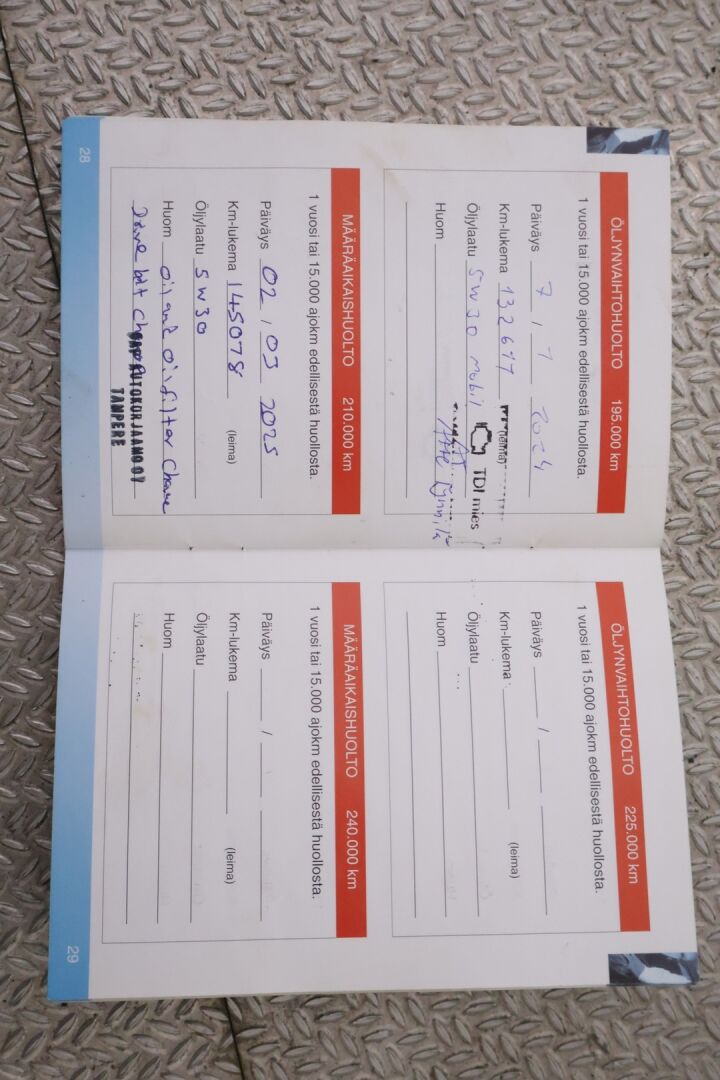 ÖLJYNVAIHTOHUOLTO 195.000 km
1 vuosi tai 15.000 ajokm edellisestä huollosta.
Päiväys 7 / 7 2024
Km-lukema 132697 (leima)
TDI mies
Öljylaatu 5W30 Mobil
Huom
MÄÄRÄAIKAISHUOLTO 210.000 km
1 vuosi tai 15.000 ajokm edellisestä huollosta.
Päiväys 02 / 05 2025
Km-lukema 145078 (leima)
Öljylaatu 5W30
Huom oil and oil filter
Drive belt
AUTOKORJAAMO OY
TAMPERE
28
ÖLJYNVAIHTOHUOLTO 225.000 km
1 vuosi tai 15.000 ajokm edellisestä huollosta.
Päiväys /
Km-lukema (leima)
Öljylaatu
Huom
MÄÄRÄAIKAISHUOLTO 240.000 km
1 vuosi tai 15.000 ajokm edellisestä huollosta.
Päiväys /
Km-lukema (leima)
Öljylaatu
Huom
29